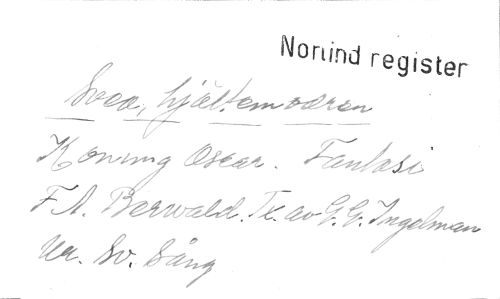 Norlind register
Svea, hjältemodren
Konung Oscar. Fantasi
F A. Berwald. Tx. av G. G. Ingelman
Ur. Sv. Sång